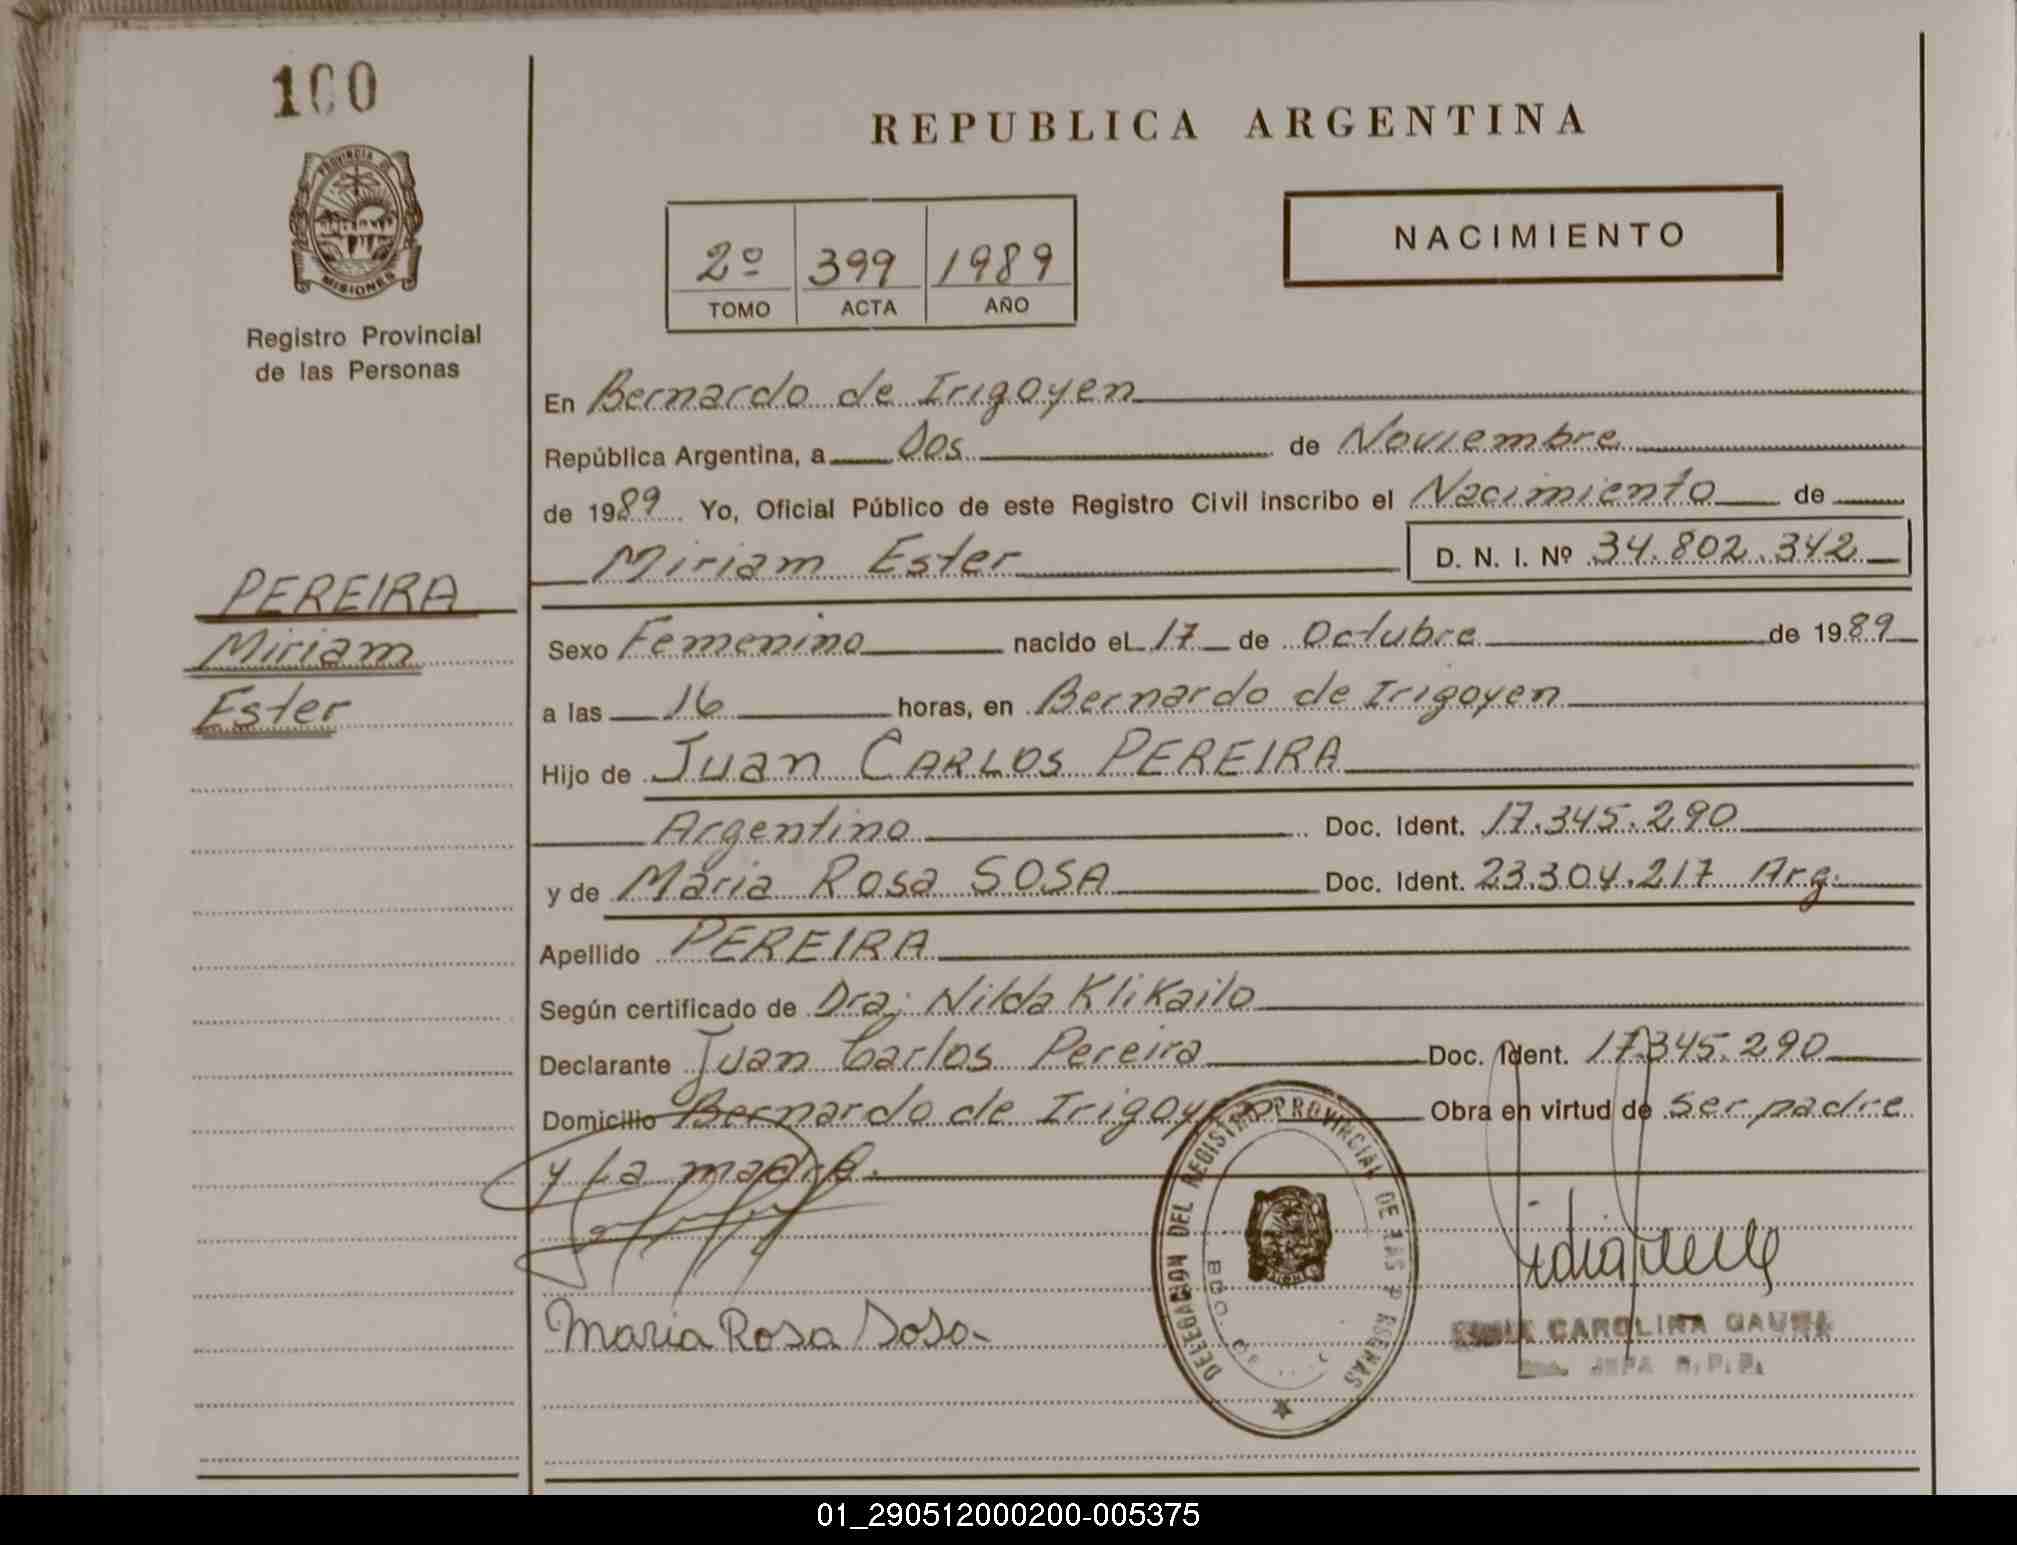 100
PROVINCIA DE
MISIONES
Registro Provincial
de las Personas
PEREIRA
Miriam
Ester
REPUBLICA ARGENTINA
2º 399 1989
TOMO ACTA AÑO
NACIMIENTO
En Bernardo de Irigoyen
República Argentina, a Dos de Noviembre
de 1989 Yo, Oficial Público de este Registro Civil inscribo el Nacimiento de
Miriam Ester D. N. I. Nº 34.802.342
Sexo Femenino nacido el 17 de Octubre de 1989
a las 16 horas, en Bernardo de Irigoyen
Hijo de Juan CARLOS PEREIRA
Argentino Doc. Ident. 17.345.290
y de Maria Rosa SOSA Doc. Ident. 23.304.217 Arg.
Apellido PEREIRA
Según certificado de Dra; Nilda Klikailo
Declarante Juan Carlos Pereira Doc. Ident. 17.345.290
Domicilio Bernardo de Irigoyen Obra en virtud de ser padre
y La madre.
DELEGACION DEL REGISTRO PROVINCIAL DE LAS PERSONAS
BDO. DE
Maria Rosa Sosa
CAROLINA
JEFA R.P.P.
01_290512000200-005375